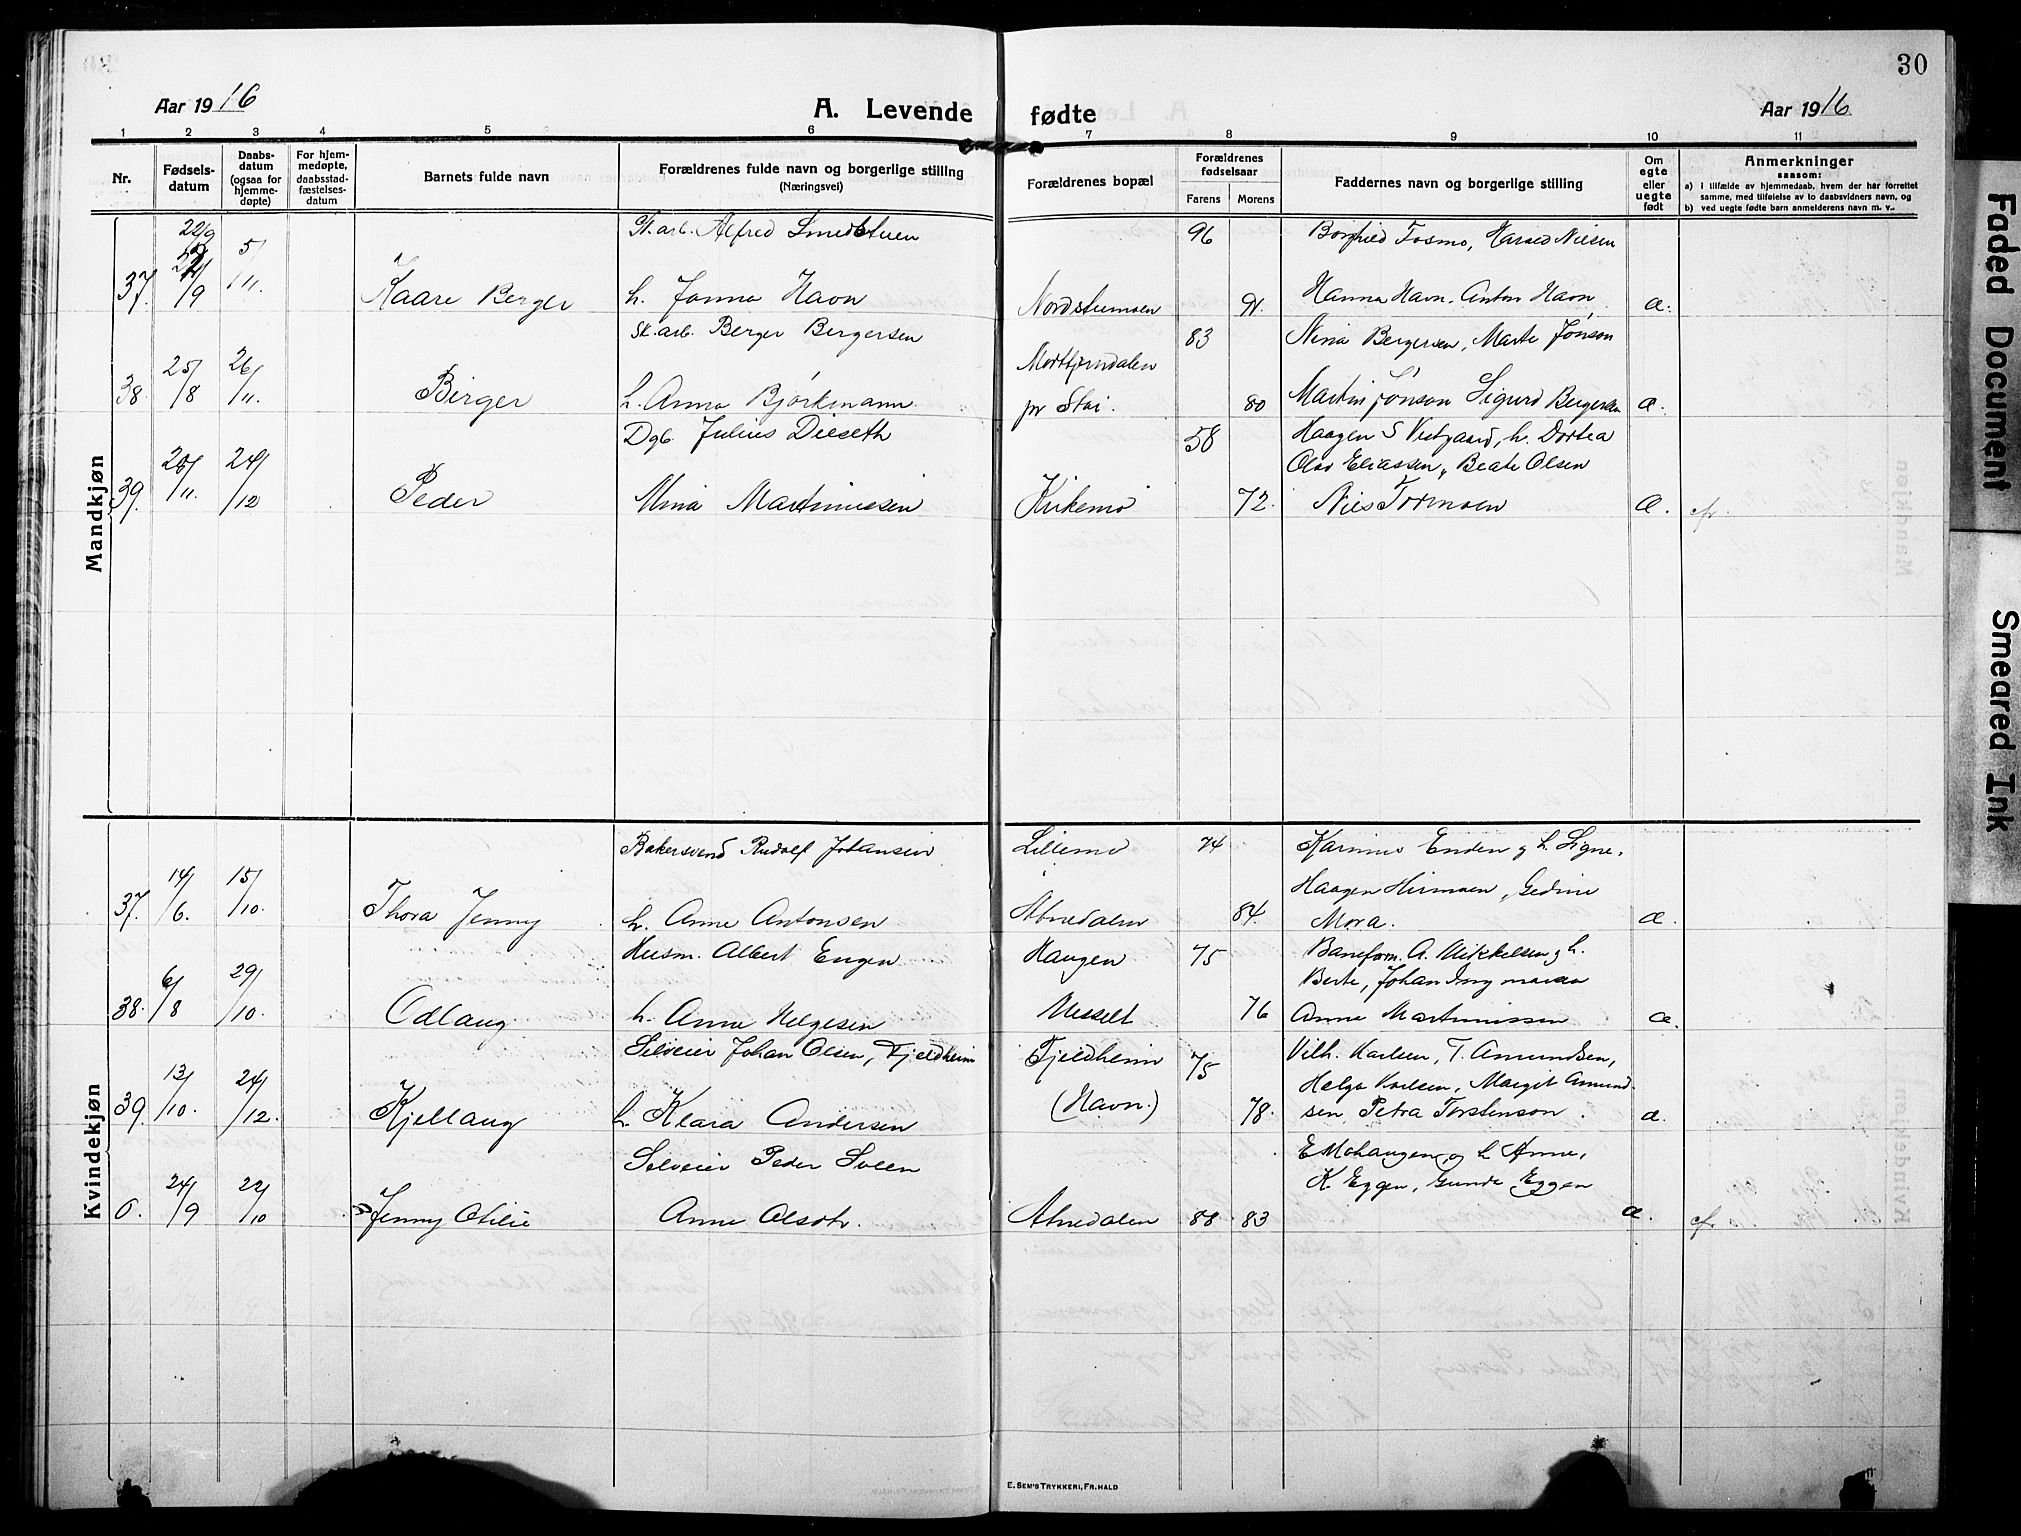 30
Aar 1916
A. Levende fødte
Aar 1916
1 2 3 4 5 6 7 8 9 10 11
Nr.
Fødsels-
datum
Daabs-
datum
(ogsaa for
hjemme-
døpte)
For hjem-
medøpte,
daabsstad-
fæstelses-
datum
Barnets fulde navn
Forældrenes fulde navn og borgerlige stilling
(Næringsvei)
Forældrenes bopæl
Forældrenes
fødselsaar
Farens Morens
Faddernes navn og borgerlige stilling
Om
egte
eller
uegte
født
Anmerkninger
saasom:
a) i tilfælde av hjemmedaab, hvem der har forrettet
samme, med tilføielse av to daabsvidners navn, og
b) ved uegte fødte barn anmelderens navn m. v..
Mandkjøn
St. arb. Alfred Smedstuen 96 Borghild Fosmo, Harald Nilsen
37. 22/9 5/11. Kaare Berger h. Janna Havn Nordstumoen 91. Hanna Havn. Anton Havn æ.
St. arb. Berger Bergersen 83 Nina Bergersen, Marte Jònson
38. 25/8 26/11. Birger h. Anna Björkmann pr Stai. 80 Martin Jònson Sigurd Bergersen æ.
Dgb. Julius Dieseth 58 Haagen S Vestgaard, h. Dortea
Olav Eliassen, Beate Olsen
39. 20/11. 24/12 Peder Mina Martinussen Kirkemo 72. Nils Tormoen æ. cfr.
Kvindekjøn
Bakersvend Rudolf Johansen Lillemo 74 Karinius Enden og h. Signe.
Haagen Hirmoen, Gedine
37. 14/6. 15/10. Thora Jenny h. Anne Antonsen Atnedalen 84. Mora. æ
Husm. Albert Engen Haugen 75 Baneform. A. Mikkelsen og h.
Berte, Johan
38. 6/8 29/10. Odlaug h. Anne Helgesen Messelt 76 Anne Martinussen æ.
Selveier Johan Olsen, Fjeldheim Fjeldheim 75 Vilh. Karlsen, T. Amundsen,
Helga Karlsen, Margit Amund-
39. 13/10. 24/12. Kjellaug h. Klara Andersen (Havn.) 78. sen, Petra Torstenson. æ.
Selveier Peder Sveen E Mohaugen, og h Anne,
K. Eggen, Gunda Eggen
6. 24/9 22/10 Jenny Otilie Anne Olsdtr. Atnedalen 88 83 æ. cfr.
E. SEM'S TRYKKERI, FR.HALD
Faded Document
Smeared Ink